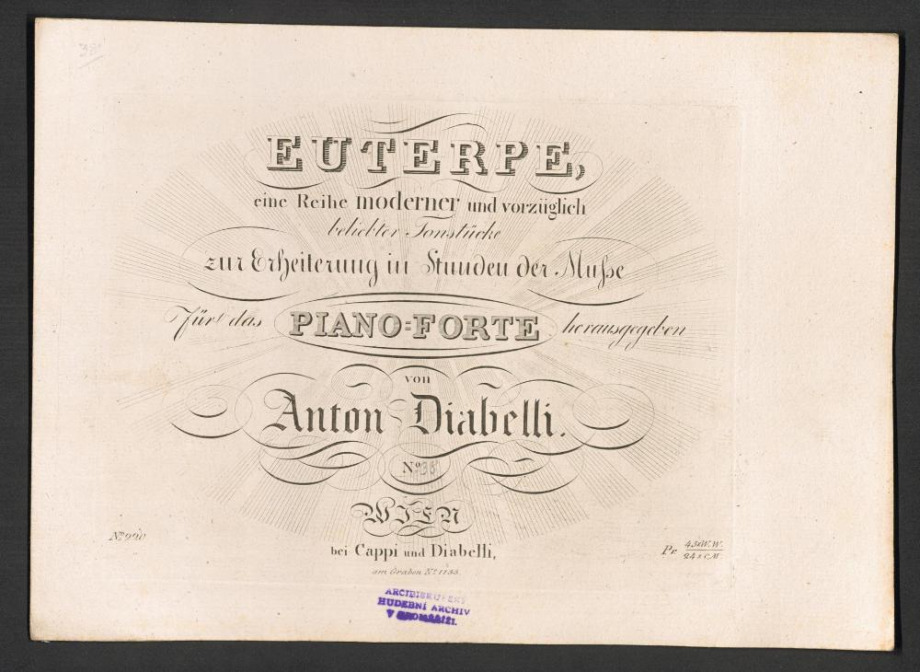 EUTERPE,
eine Reihe moderner und vorzüglich
beliebter Tonstücke
zur Erheiterung in Stunden der Muſse
Für das PIANO=FORTE herausgegeben
von
Anton Diabelli.
No. 38
WIEN
bei Cappi und Diabelli,
am Graben No. 1133.
Pr.
HUDEBNÍ ARCHIV
V